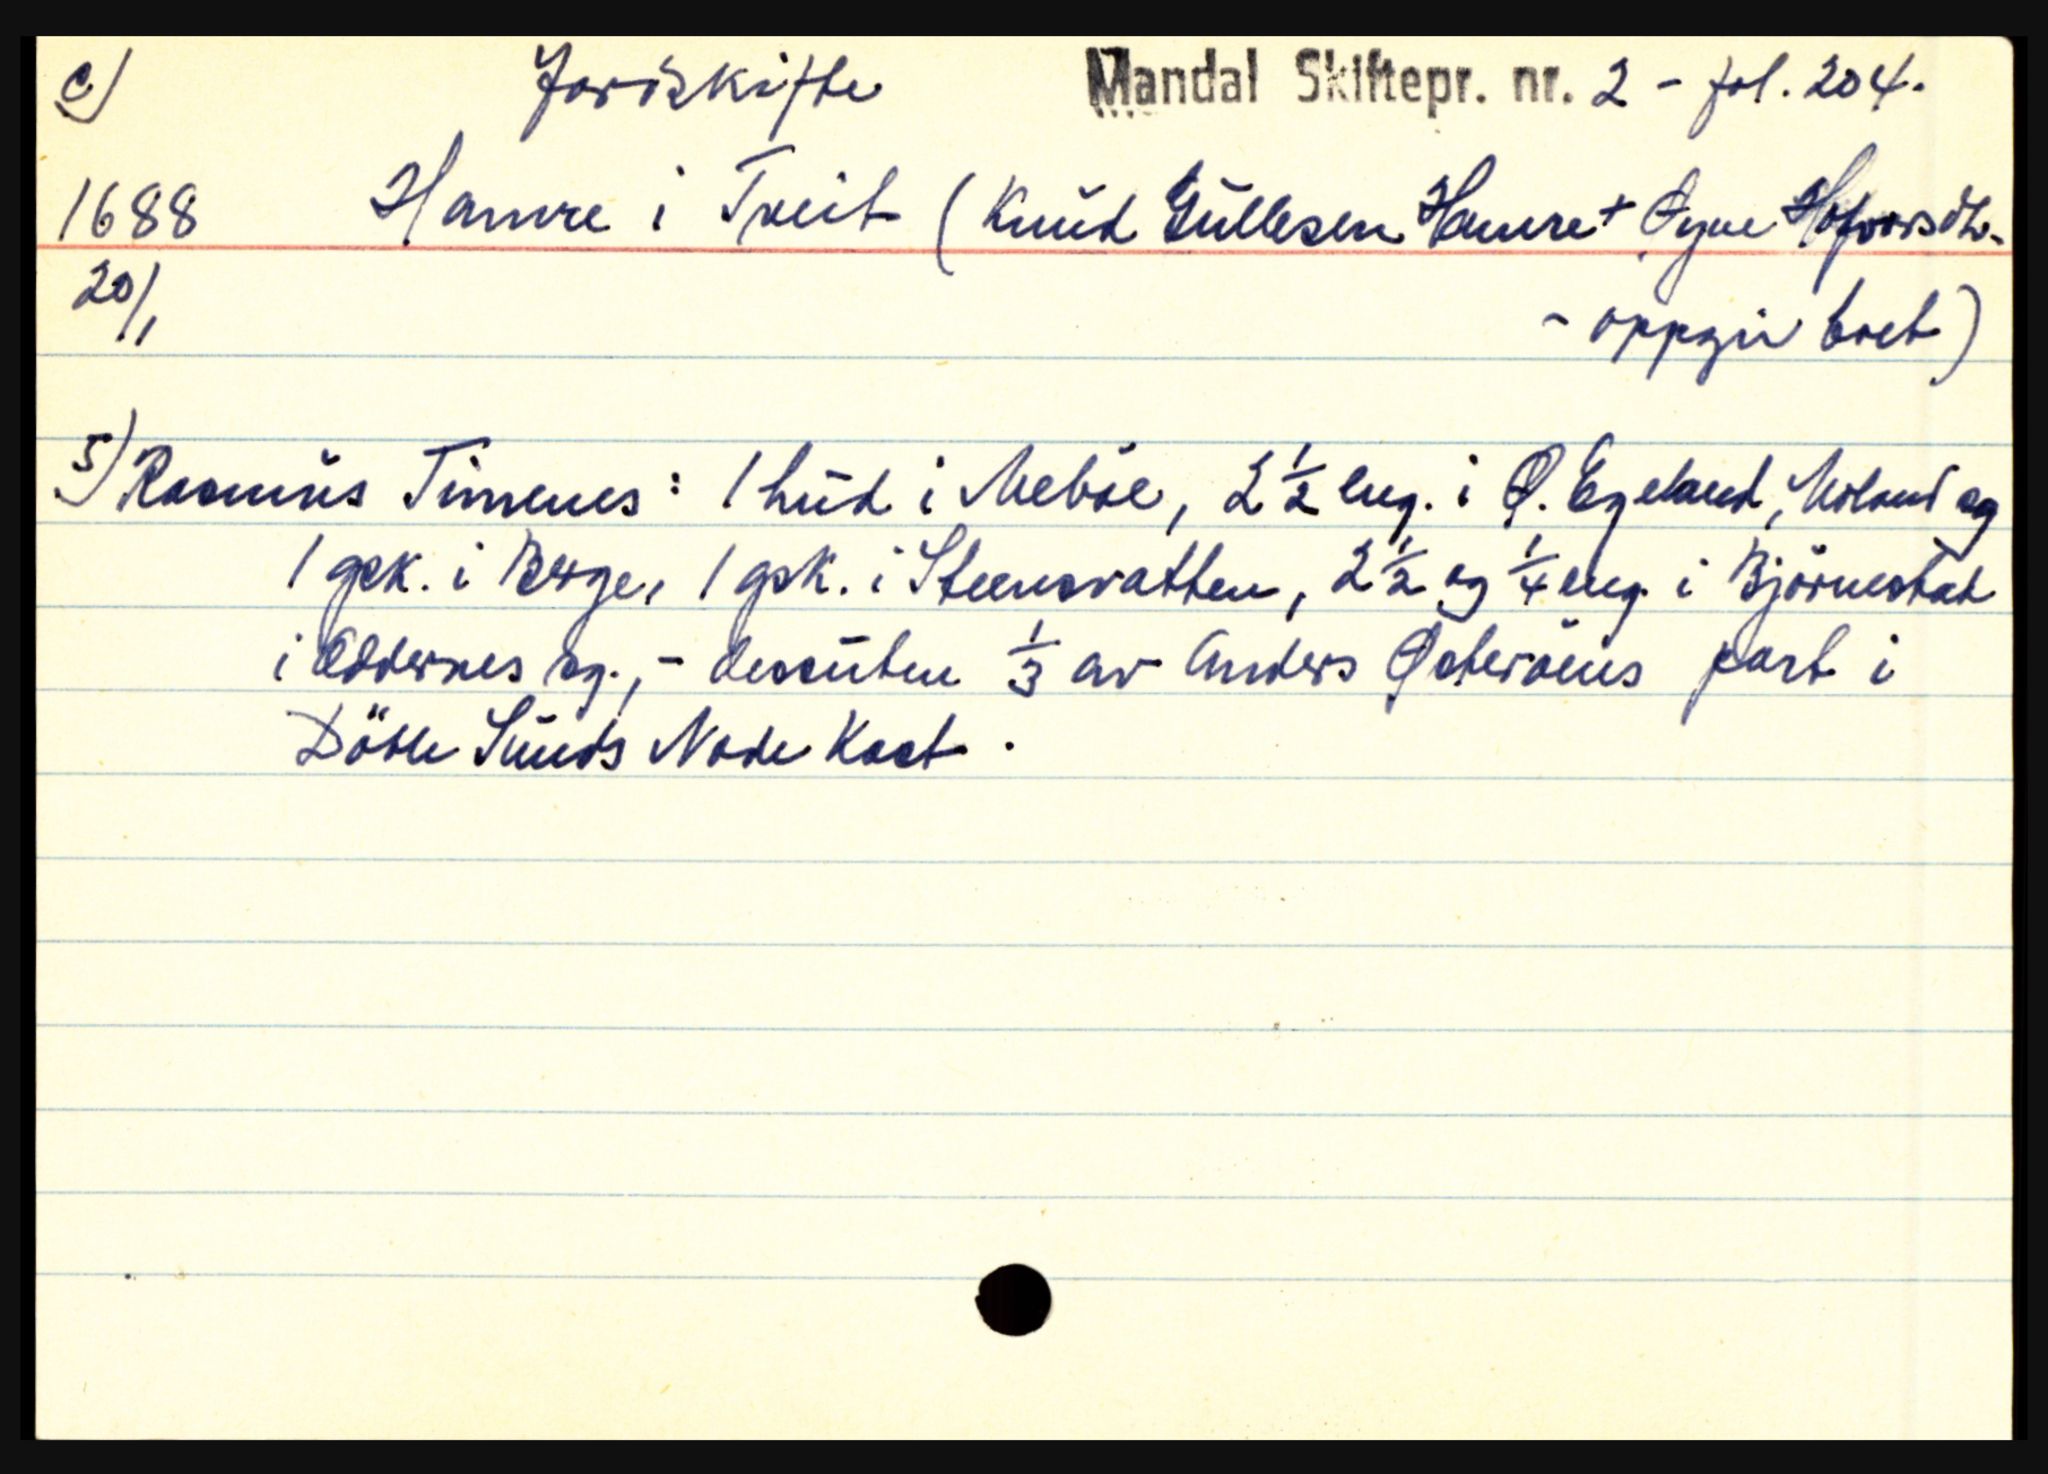 c) Jordskifte Mandal Skiftepr. nr. 2 - fol. 204.
1688 Hamre i Tveit (Knud Gullesen Hamre +
20/1 - oppgir boet)
5) Rasmus Timenes: 1 hud i Meböe, 2 1/2 eng. i Ø. Egeland, Moland og
1 gsk. i Berge, 1 gsk. i Steensvatten, 2 1/2 og 1/4 eng. i Björnestad
i Oddernes sg., - dessuten 1/3 av Anders Østeröens part i
Döble Sunds Node Kast.